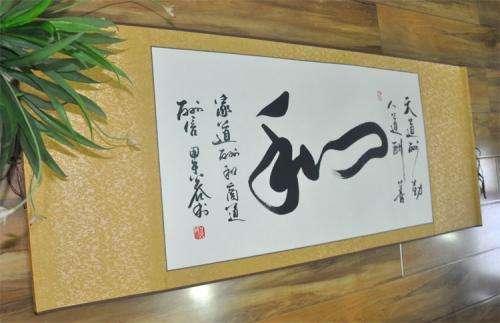 天道酬勤
人道酬善
和
家道酬和商道
酬信